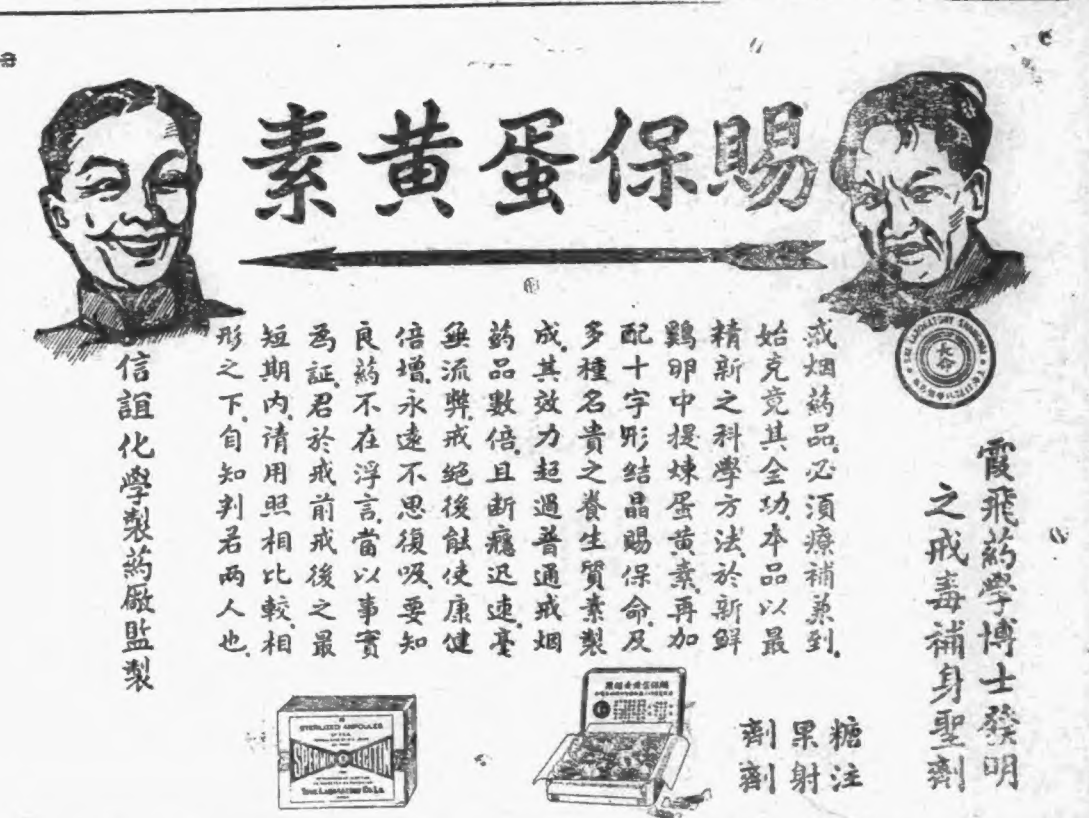 賜保蛋黃素
霞飛葯學博士發明
之戒毒補身聖劑
糖果劑
注射劑
戒烟葯品必須療補兼到.
始克竟其全功.本品以最
精新之科學方法.於新鮮
鷄卵中提煉蛋黃素.再加
配十字形结晶賜保命.及
多種名貴之養生質素製
成.其效力超過普通戒烟
葯品數倍.且断癮迅速.毫
無流弊.戒絕後能使康健
倍增.永遠不思復吸.要知
良葯不在浮言.當以事實
為証.君於戒前戒後之最
短期内.請用照相比較.相
形之下.自知判若兩人也.
信誼化學製葯厰監製
長命
STERILIZED AMPOULES
SPERMIN LECITIN